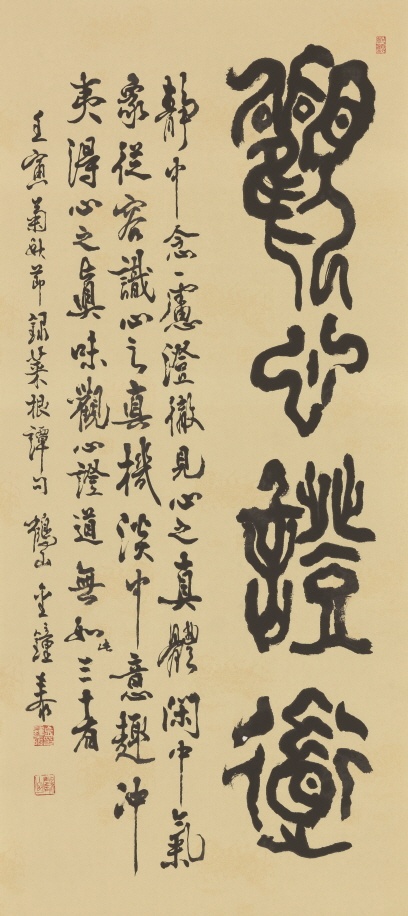 觀心證道
靜中念慮澄徹見心之真體閑中氣
象從容識心之真機淡中意趣沖
夷得心之眞味觀心證道無如此三者
壬寅菊秋節錄菜根譚句 鶴山 金鐘泰